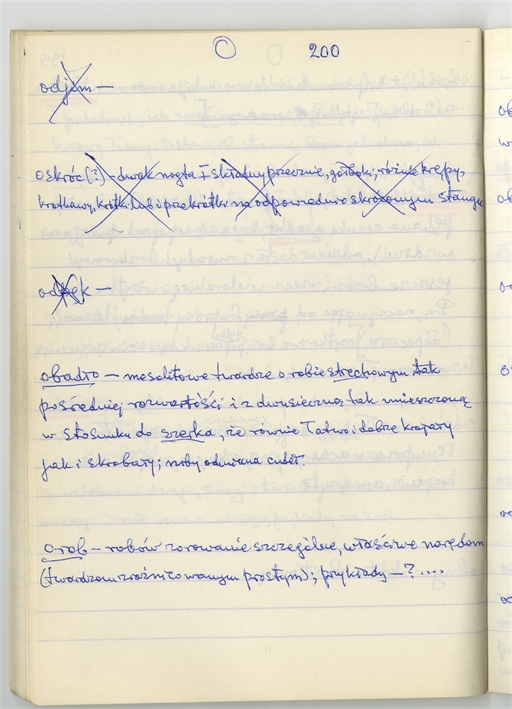 O 200
odjem —
oskróc(?) – dwuk nogta I składny przecznie, głęboki, różnie krępy,
krótkawy, krótki lub i przekrótki na odpowiednio skróconym stangu
odłęk —
obadło — mesolitowe twardze o robie strechowym tak
pośredniej rozwartości i z dwusieczną tak umieszczoną
w stosunku do szerka, że równie łatwo i dobrze krapary
jak i skrobary; niby odmiana cudeł.
orob — robów zorowanie szczególne, właściwe narędom
(twardzom zróżnicowanym prostym); przykłady — ? ....